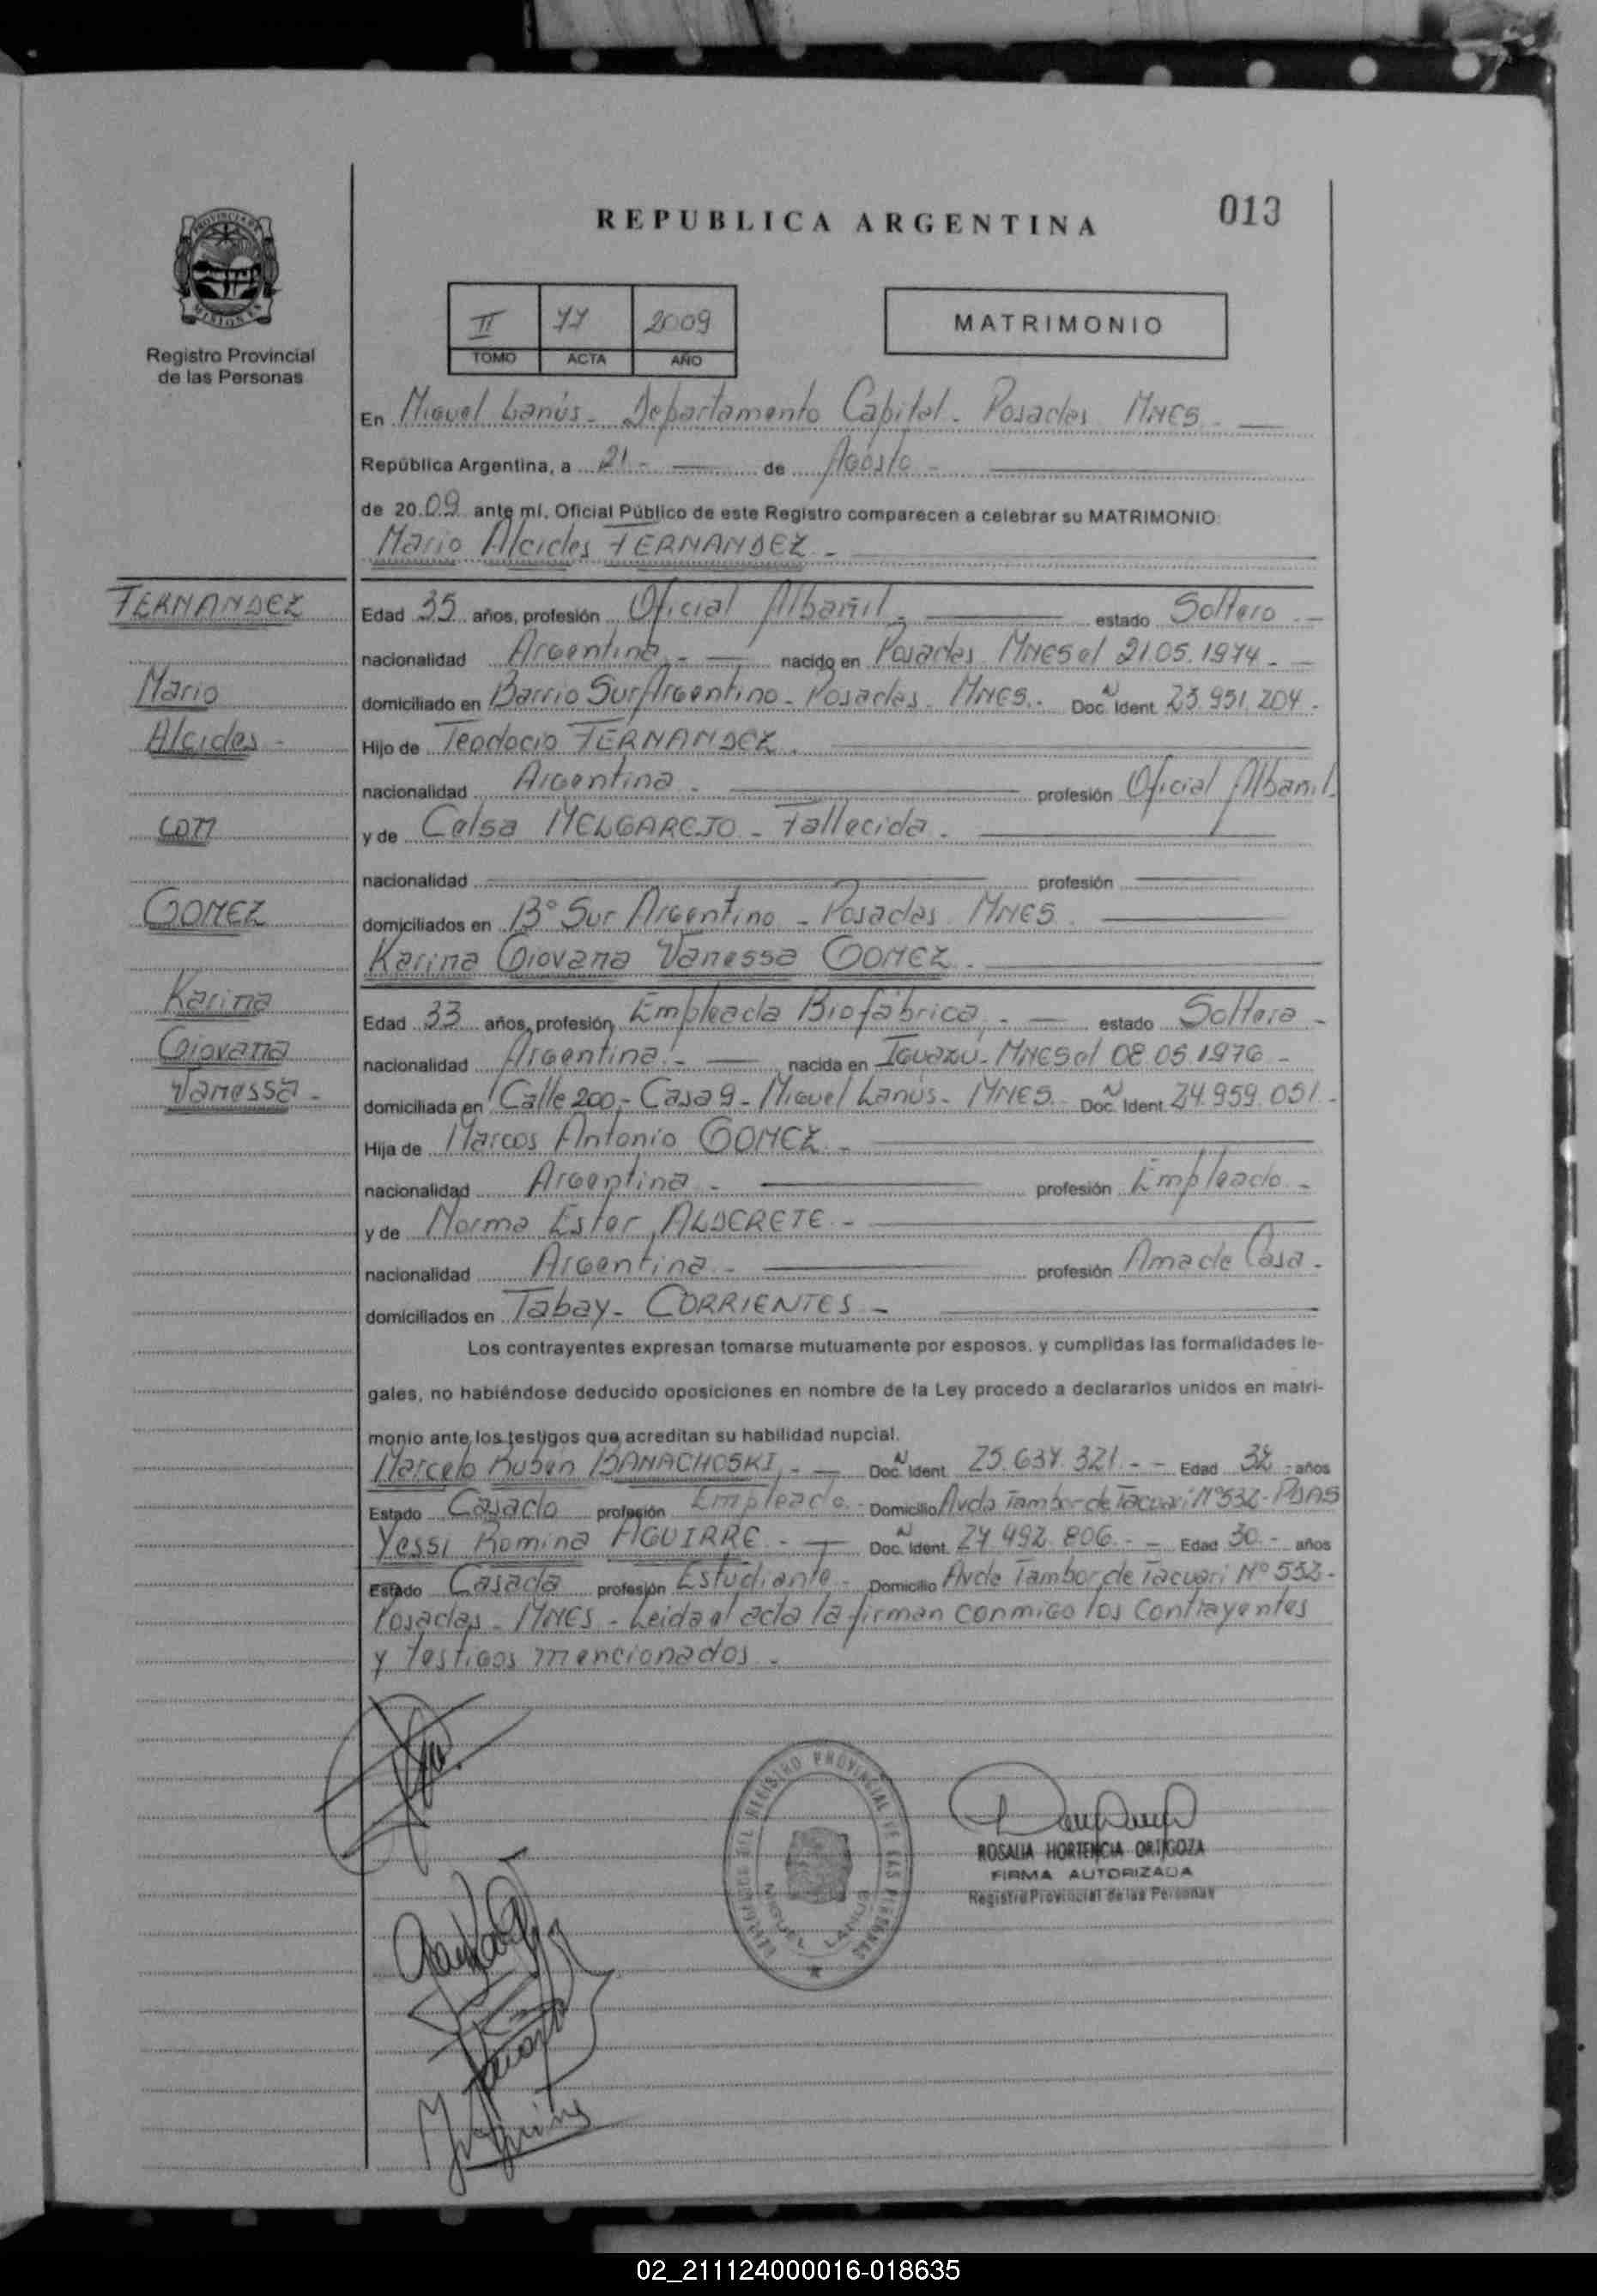 REPUBLICA ARGENTINA
013
PROVINCIA DE
MISIONES
Registro Provincial
de las Personas
II 77 2009
TOMO ACTA AÑO
MATRIMONIO
En Miguel Lanús - Departamento Capital - Posadas MNES -
República Argentina, a 21 - de Agosto -
de 20 09 ante mí, Oficial Público de este Registro comparecen a celebrar su MATRIMONIO:
Mario Alcides FERNANDEZ -
FERNANDEZ
Mario
Alcides -
con
GOMEZ
Karina
Giovana
Vanessa -
Edad 35 años, profesión Oficial Albañil - estado Soltero -
nacionalidad Argentina - nacido en Posadas MNES el 21.05.1974 -
domiciliado en Barrio Sur Argentino - Posadas MNES - Doc. Ident. N 23.951.204 -
Hijo de Teodocio FERNANDEZ -
nacionalidad Argentina - profesión Oficial Albañil
y de Celsa MELGAREJO - Fallecida -
nacionalidad profesión
domiciliados en B° Sur Argentino - Posadas MNES
Karina Giovana Vanessa GOMEZ -
Edad 33 años, profesión Empleada Biofábrica - estado Soltera -
nacionalidad Argentina - nacida en Iguazu - MNES el 08.05.1976 -
domiciliada en Calle 200 - Casa 9 - Miguel Lanús - MNES - Doc. Ident. N 24.959.051 -
Hija de Marcos Antonio GOMEZ -
nacionalidad Argentina - profesión Empleado -
y de Norma Ester ALDERETE -
nacionalidad Argentina - profesión Ama de Casa -
domiciliados en Tabay - CORRIENTES -
Los contrayentes expresan tomarse mutuamente por esposos, y cumplidas las formalidades le-
gales, no habiéndose deducido oposiciones en nombre de la Ley procedo a declararlos unidos en matri-
monio ante los testigos que acreditan su habilidad nupcial.
Marcelo Ruben BANACHOSKI - Doc. Ident. N 25.637.321 - - Edad 32 - años
Estado Casado profesión Empleado - Domicilio Avda Tambor de Tacuari N° 532 - PDAS
Yessi Romina AGUIRRE - Doc. Ident. N 27.492.806 - - Edad 30 - años
Estado Casada profesión Estudiante - Domicilio Avda Tambor de Tacuari N° 532 -
Posadas - MNES - Leida el acta la firman conmigo los contrayentes
y testigos mencionados -
REGISTRO PROVINCIAL DE LAS PERSONAS
MIGUEL LANUS
ROSALIA HORTENCIA ORTIGOZA
FIRMA AUTORIZADA
Registro Provincial de las Personas
02_211124000016-018635